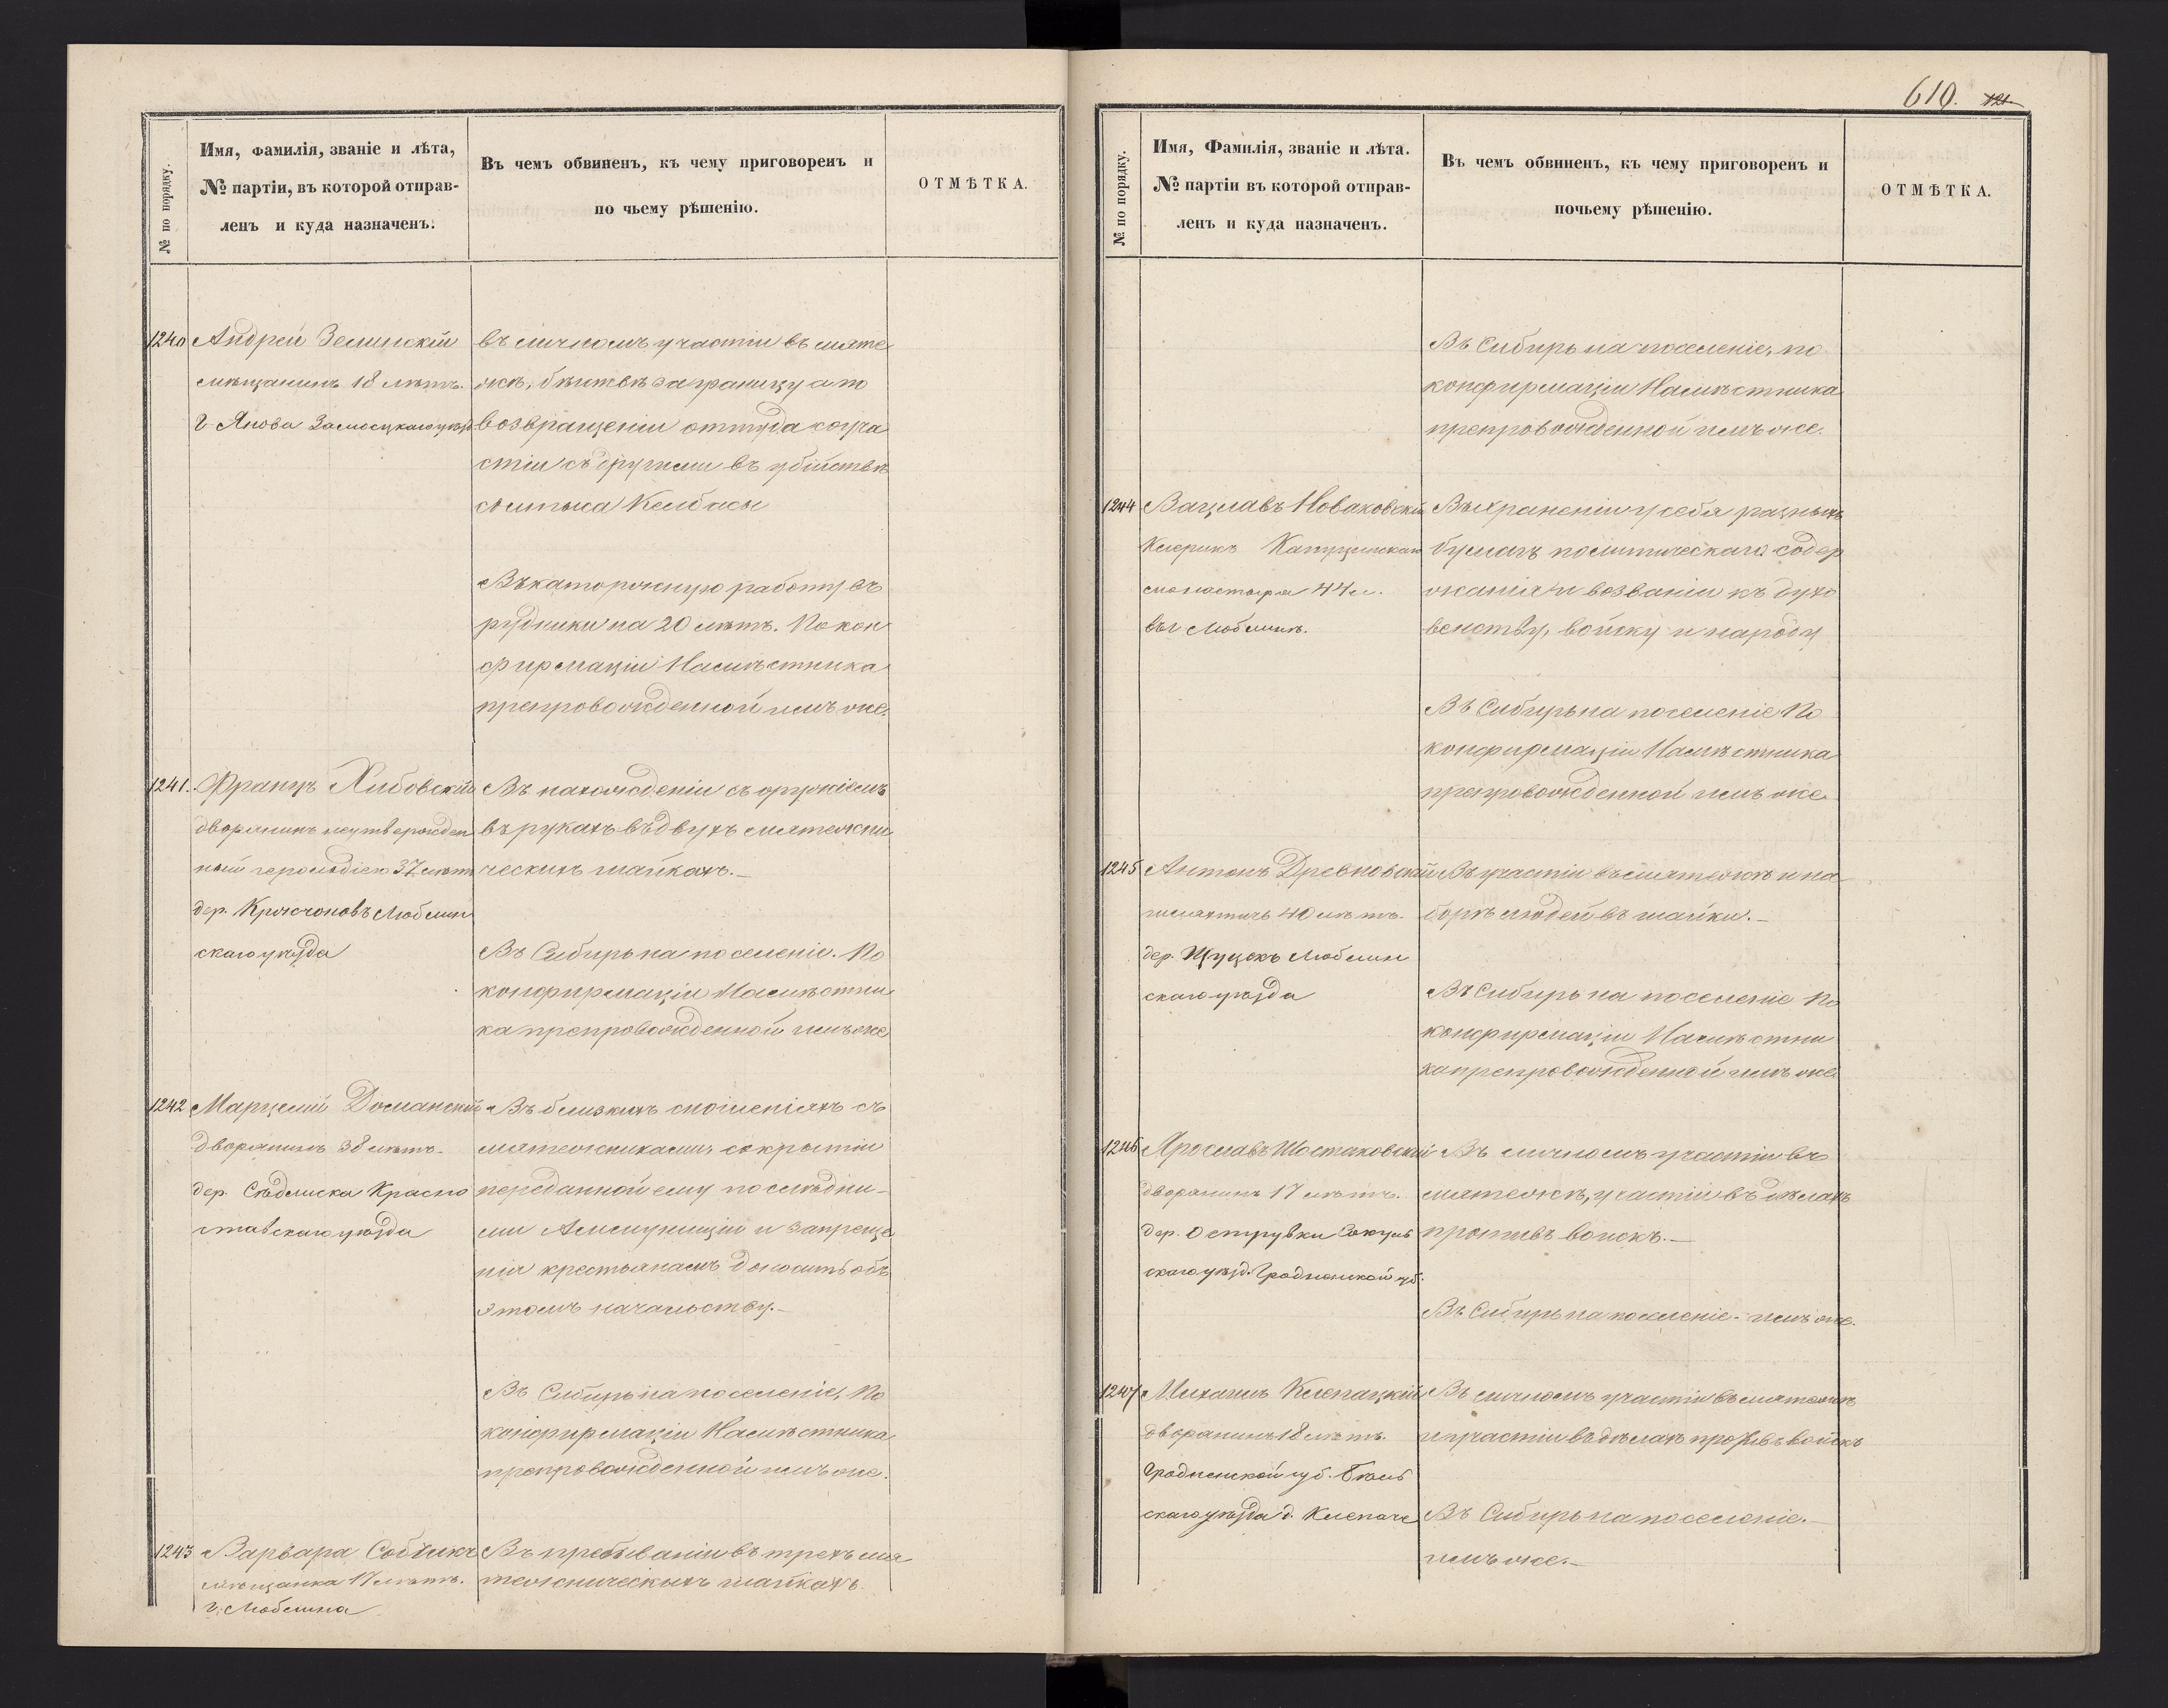 № по порядку.
Имя, фамилія, званіе и лѣта,
№ партіи, въ которой отправ-
ленъ и куда назначенъ.
Въ чемъ обвиненъ, къ чему приговоренъ и
по чьему рѣшенію.
ОТМѢТКА.
1240
Андрей Зелинскій
мѣщанинъ 18 лѣтъ.
г. Янова Замосцкаго уѣзд
въ личномъ участіи въ мяте
жѣ, бѣгствѣ за границу а по
возвращеніи оттуда въ соуча
стіи съ другими въ убійствѣ
солтыса Келбасы
Въ каторжную работу въ
рудники на 20 лѣтъ. По кон
фирмаціи Намѣстника
препровожденной имъ же.
1241.
Францъ Хибовскій
дворянинъ неутвержден
ный герольдіею 37 лѣтъ
дер. Крючоновъ Люблин
скаго уѣзда
Въ нахожденіи съ оружіемъ
въ рукахъ въ двухъ мятежни
ческихъ шайкахъ.—
Въ Сибирь на поселеніе. По
конфирмаціи Намѣстни
ка препровожденной имъ же
1242
Марцелій Доманскій
дворянинъ 38 лѣтъ.
дер. Сѣдлиска Красно
ставскаго уѣзда
Въ близкихъ сношеніяхъ съ
мятежниками, сокрытіи
переданной ему послѣдни-
ми Аммуниціи и запреще
ніи крестьянамъ доносить объ
этомъ начальству.—
Въ Сибирь на поселеніе, По
конфирмаціи Намѣстника
препровожденной имъ же.
1243
Варвара Собчикъ
мѣщанка 17 лѣтъ.
г. Люблина
Въ пребываніи въ трехъ мя
тежническихъ шайкахъ.
610. 121
№ по порядку.
Имя, Фамилія, званіе и лѣта.
№ партіи въ которой отправ-
ленъ и куда назначенъ.
Въ чемъ обвиненъ, къ чему приговоренъ и
почьему рѣшенію.
ОТМѢТКА.
Въ Сибирь на поселеніе, по
конфирмаціи Намѣстника
препровожденной имъ же.
1244
Вацлавъ Новаковскій
Клерикъ Капуцинскаго
монастыря 44 л.
въ г Люблинѣ.
Въ храненіи у себя разныхъ
бумагъ политическаго содер
жанія и возваніи къ духо
венству, войску и народу
Въ Сибирь на поселеніе По
конфирмаціи Намѣстника
препровожденной имъ же
1245
Антонъ Древновскій
шляхтичъ 40 лѣтъ.
дер. Щуцокъ Люблин
скаго уѣзда
Въ участіи въ мятежѣ и на
борѣ людей въ шайки.—
Въ Сибирь на поселеніе По
конфирмаціи Намѣстни
ка препровожденной имъ же
1246
Ярославъ Шостаковскій
дворянинъ 17 лѣтъ.
дер. Острувки Сокуль
скаго уѣзд. Гродненской губ.
Въ личномъ участіи въ
мятежѣ, участіи въ дѣлахъ
противъ войскъ.—
Въ Сибирь на поселеніе. имъ же.
1247
Михаилъ Клепацкій
дворянинъ 18 лѣтъ.
Гродненской губ. Бѣль
скаго уѣзда д. Клепаче
Въ личномъ участіи въ мятежѣ
и участіи въ дѣлахъ противъ войскъ
Въ Сибирь на поселеніе.—
имъ же.—